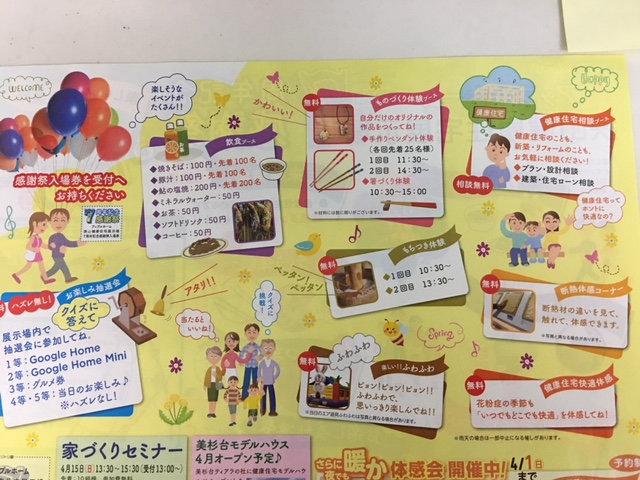 WELCOME
楽しそうな
イベントが
たくさん!!
感謝祭入場券を受付へ
お持ちください
飲食ブース
◆焼きそば:100円・先着100名
◆豚汁:100円・先着100名
◆鮎の塩焼:200円・先着200名
◆ミネラルウォーター:50円
◆お茶:50円
◆ソフトドリンク:50円
◆コーヒー:50円
かわいい!
無料
ものづくり体験ブース
自分だけのオリジナルの
作品をつくってね!
◆手作りペンダント体験
(各回先着25名様)
1回目 11:30~
2回目 14:30~
◆箸づくり体験
10:30~15:00
※材料には数に限りがございます。
Happy
健康住宅
健康住宅相談ブース
健康住宅のことも、
新築・リフォームのことも、
お気軽に相談ください!
◆プラン・設計相談
◆建築・住宅ローン相談
相談無料
健康住宅って
ホントに
快適なの?
ハズレ無し!
お楽しみ抽選会
クイズに
答えて
展示場内で
抽選会に参加してね。
1等:Google Home
2等:Google Home Mini
3等:グルメ券
4等・5等:当日のお楽しみ♪
※ハズレなし!
アタリ!!
当たると
いいね!
クイズに
挑戦!
ペッタン!
ペッタン
無料
もちつき体験
◆1回目 10:30~
◆2回目 13:30~
Spring
無料
ふわふわ
楽しい!!ふわふわ
ピョン!ピョン!ピョン!!
ふわふわで、
思いっきり楽しんでね!!
※当日のエア遊具ふわふわは写真と異なる場合があります。
無料
断熱体感コーナー
断熱材の違いを見て、
触れて、体感できます。
※写真と異なる場合があります。
無料
健康住宅快適体感
花粉症の季節も
「いつでもどこでも快適」を体感してね!
※雨天の場合は一部中止になる催しがあります。
家づくりセミナー
4月15日(日)13:30~15:30(受付13:00~)
美杉台モデルハウス
4月オープン予定♪
さらに
暖か体感会開催中!
4/1日
まで
予約制